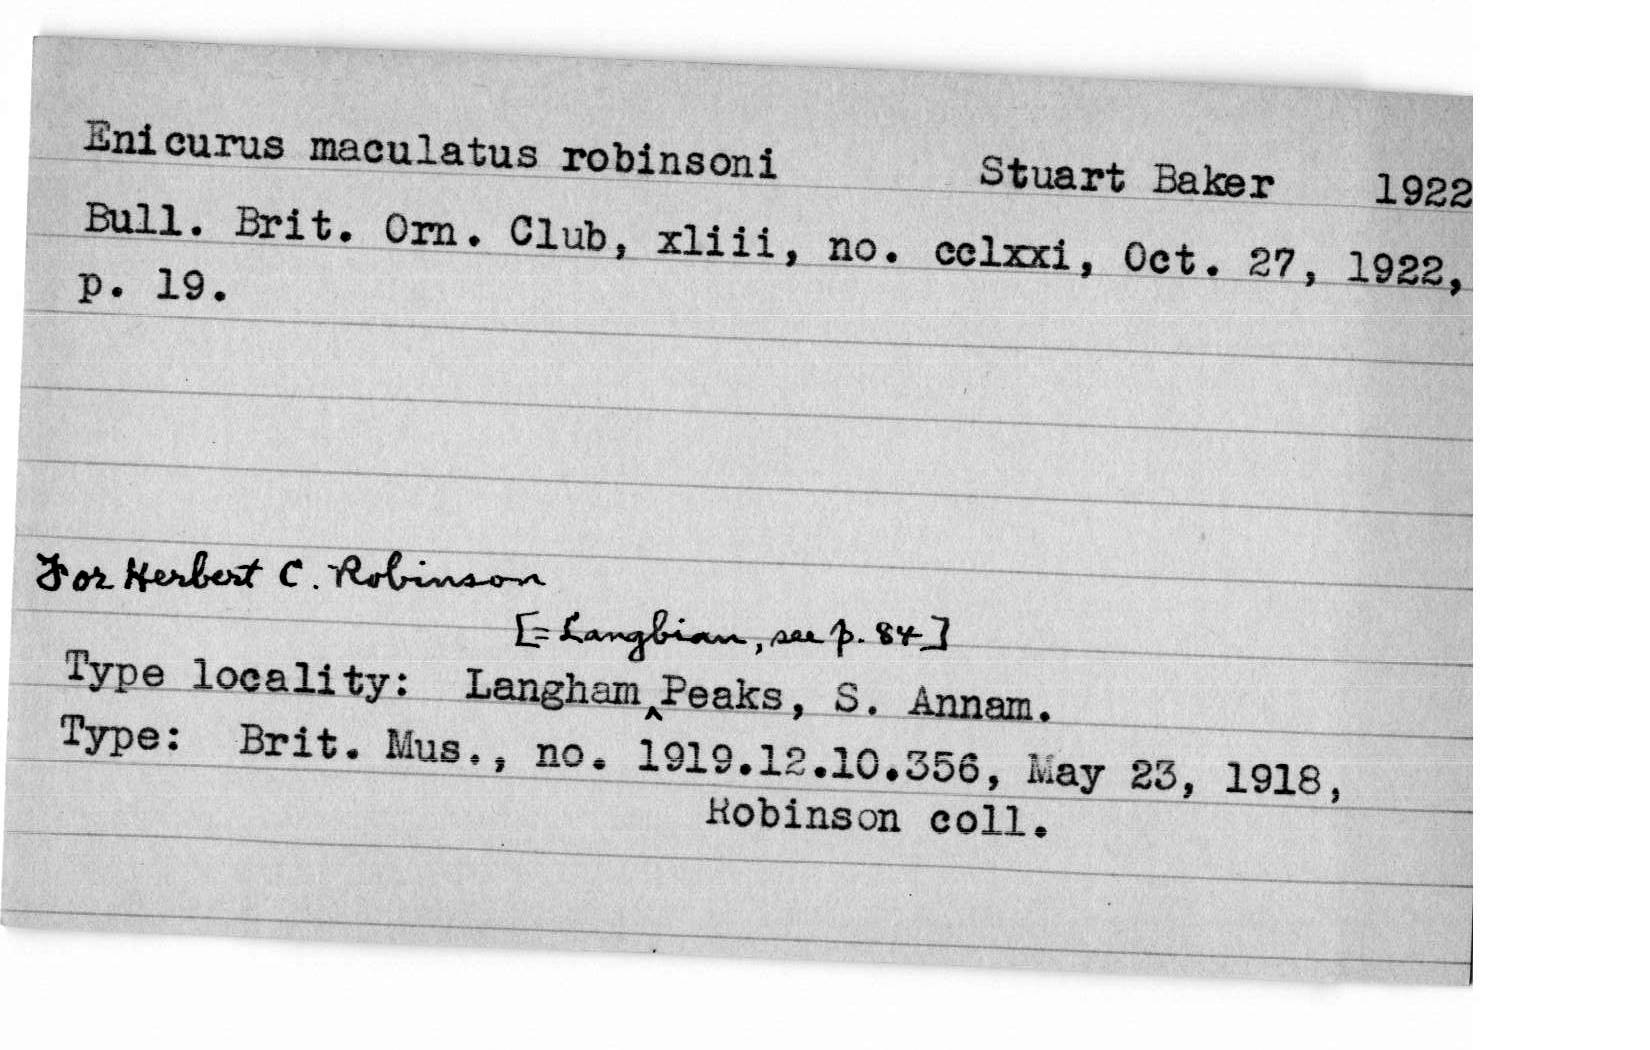 Enicurus maculatus robinsoni Stuart Baker 1922
Bull. Brit. Orn. Club, xliii, no. cclxxi, Oct. 27, 1922,
p. 19.
For Herbert C. Robinson
[= Langbian, see p. 84]
Type locality: Langham ^ Peaks, S. Annam.
Type: Brit. Mus., no. 1919.12.10.356, May 23, 1918,
Robinson coll.